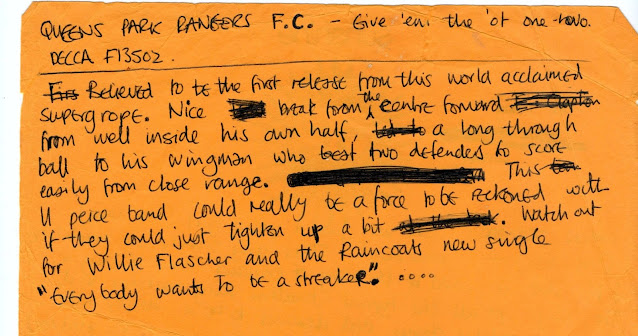 QUEENS PARK RANGERS F.C. - Give 'em the 'ot one-two.
DECCA F13502.
Firs Believed to be the first release from this world acclaimed
supergrope. Nice break from the centre forward
from well inside his own half, a long through
ball to his wingman who beat two defenders to score
easily from close range. This
11 peice band could really be a force to be reckoned with
if they could just tighten up a bit . Watch out
for Willie Flascher and the Raincoats new single
"Everybody wants To be a streaker". ....